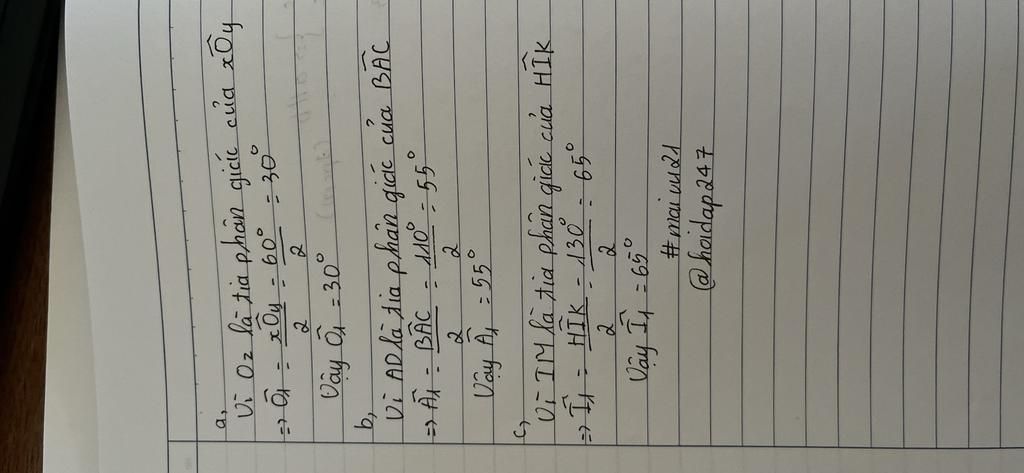 a,
Vì Oz là tia phân giác của xÔy
=> Ô₁ = xÔy/2 = 60°/2 = 30°
Vậy Ô₁ = 30°
b,
Vì AD là tia phân giác của BÂC
=> Â₁ = BÂC/2 = 110°/2 = 55°
Vậy Â₁ = 55°
c,
Vì IM là tia phân giác của HÎK
=> Î₁ = HÎK/2 = 130°/2 = 65°
Vậy Î₁ = 65°
#maivu21
@hoidap247